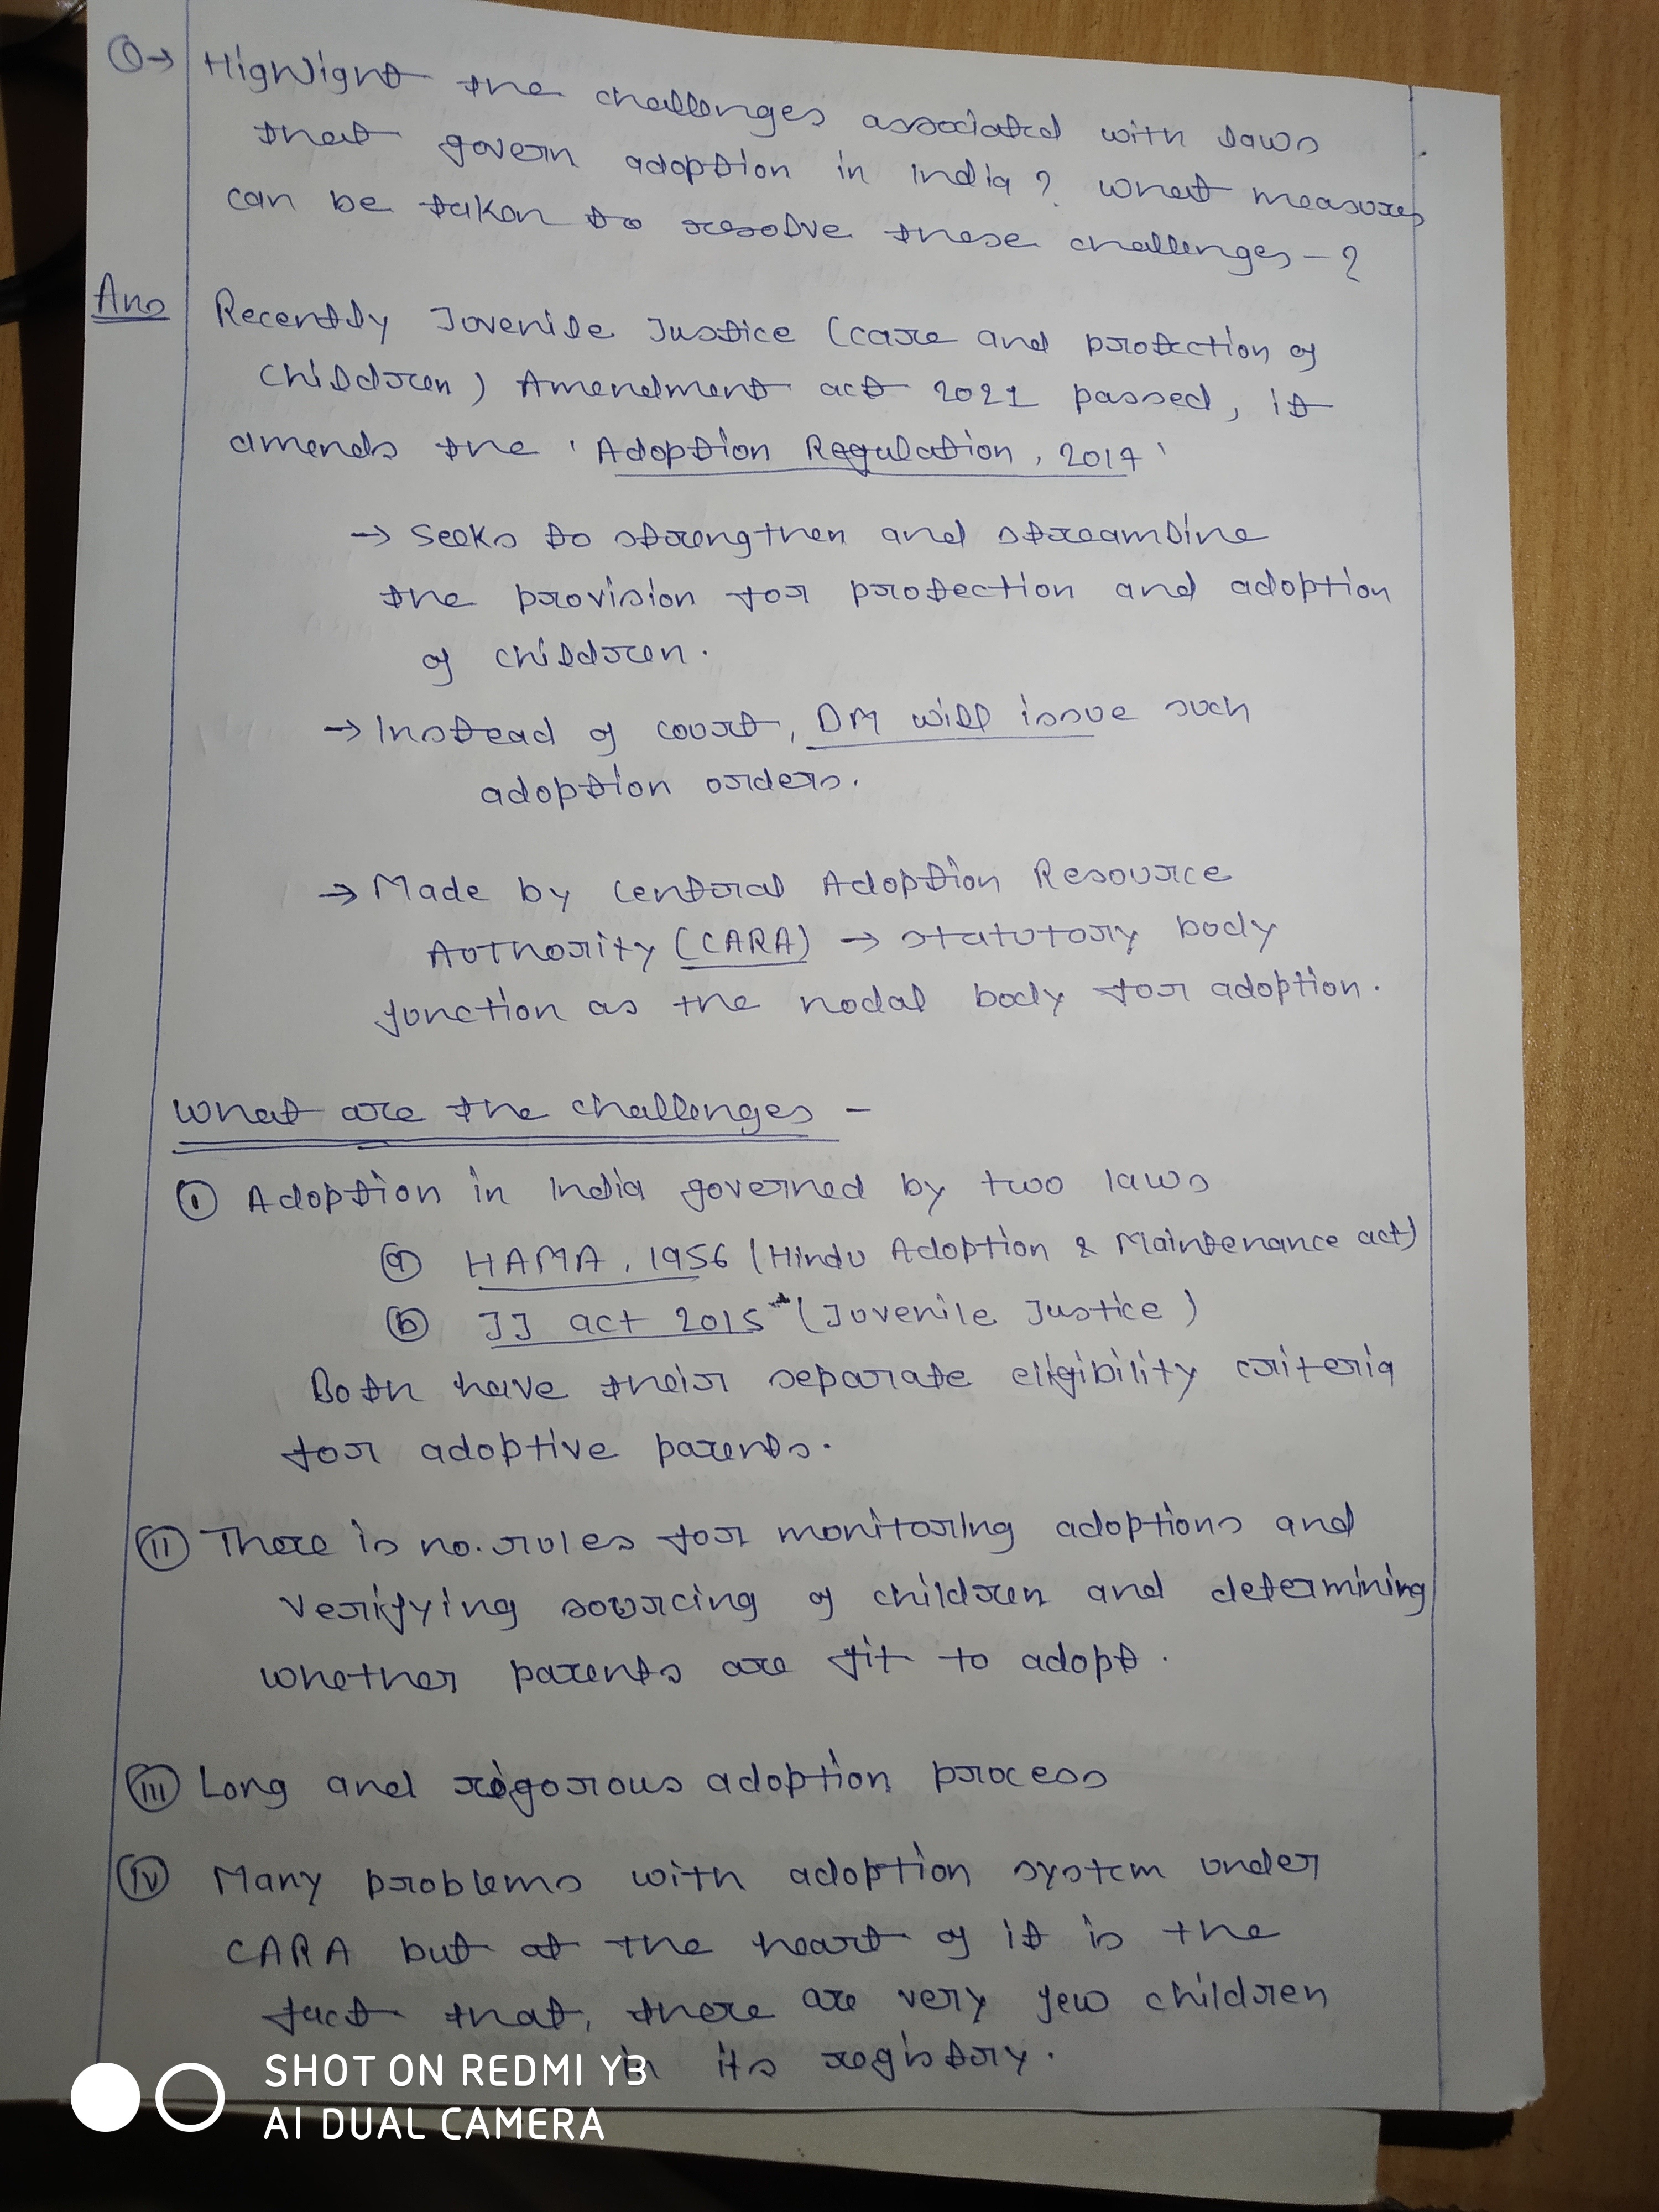 Q→ Highlight the challenges associated with laws
that govern adoption in India? What measures
can be taken to resolve these challenges-?
Ans Recently Juvenile Justice (care and protection of
Children) Amendment act 2021 passed, it
amends the 'Adoption Regulation, 2017'
→ Seeks to strengthen and streamline
the provision for protection and adoption
of children.
→ Instead of court, DM will issue such
adoption orders.
→ Made by Central Adoption Resource
Authority (CARA) → statutory body
function as the nodal body for adoption.
What are the challenges -
(i) Adoption in India governed by two laws
(a) HAMA, 1956 (Hindu Adoption & Maintenance act)
(b) JJ act 2015 (Juvenile Justice)
Both have their separate eligibility criteria
for adoptive parents.
(ii) There is no rules for monitoring adoptions and
verifying sourcing of children and determining
whether parents are fit to adopt.
(iii) Long and rigorous adoption process
(iv) Many problems with adoption system under
CARA but at the heart of it is the
fact that, there are very few children
in its registory.
SHOT ON REDMI Y3
AI DUAL CAMERA